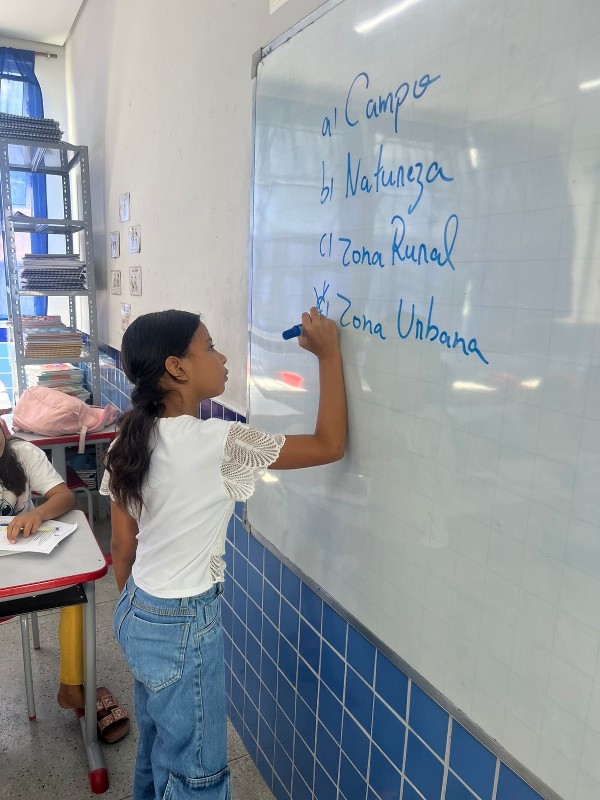 a) Campo
b) Natureza
c) Zona Rural
d) Zona Urbana